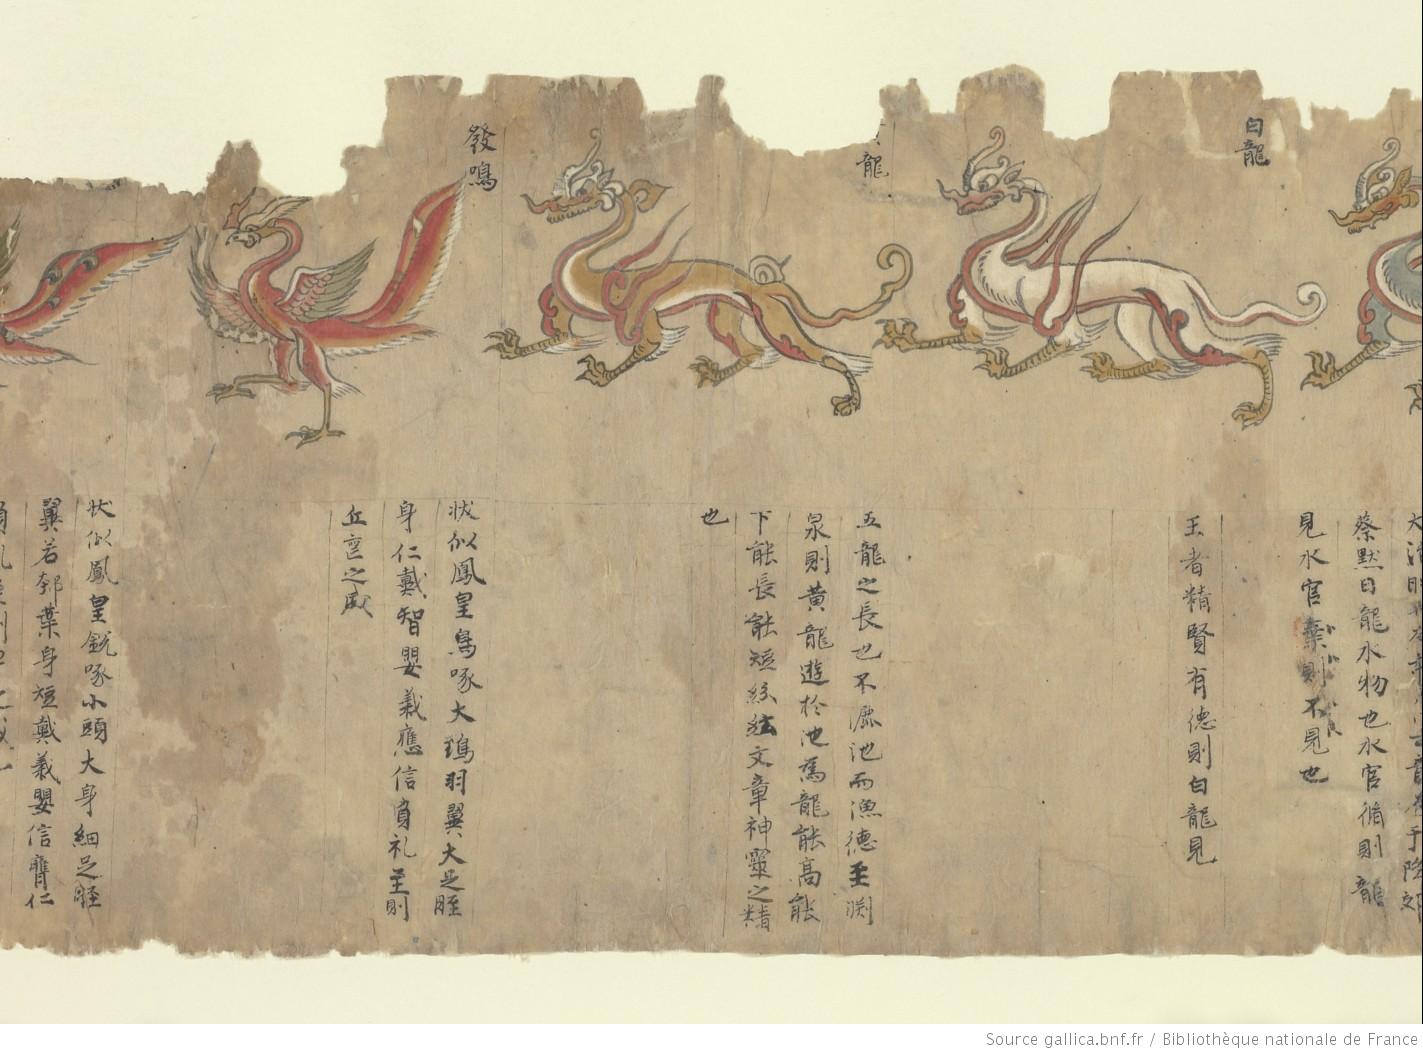 蔡默曰龍水物也水官脩則龍
見水官棄則不見也
白龍
王者精賢有德則白龍見
龍
五龍之長也不漉池而漁德至渕
泉則黃龍遊於池焉龍能高能
下能長能短絲絃文章神靈之精
也
發鳴
狀似鳳皇鳥啄大頸羽翼大足脛
身仁戴智嬰義應信負礼至則
之感
狀似鳳皇銳啄小頭大身細足脛
翼若邾葉身短戴義嬰信膺仁
Source gallica.bnf.fr / Bibliothèque nationale de France